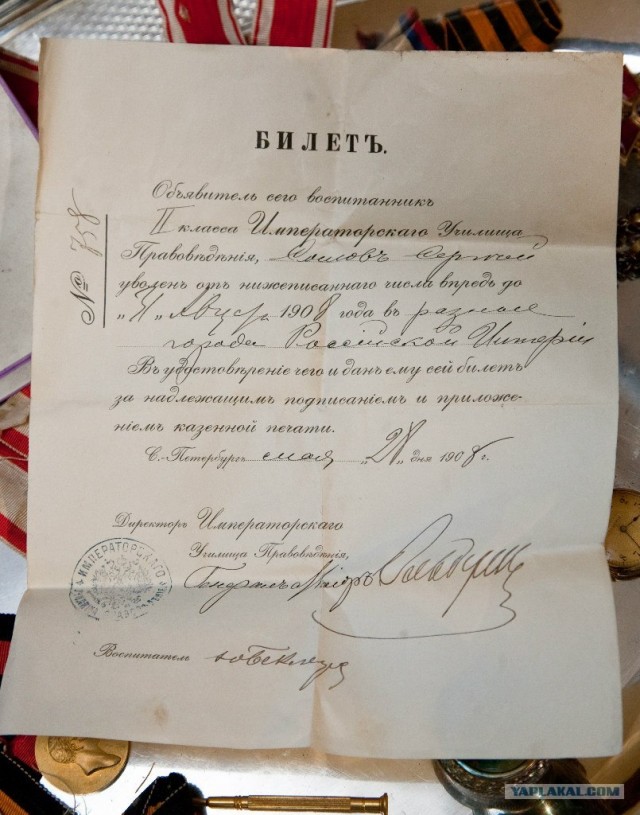 БИЛЕТЪ.
№ 758
Объявитель сего воспитанникъ
II класса Императорскаго Училища
Правовѣдѣнія, Сомовъ Сергей
уволенъ отъ нижеписаннаго числа впредь до
" " Авгус. 1908 года въ разные
города Россійской Имперіи
Въ удостовѣреніе чего и данъ ему сей билетъ
за надлежащимъ подписаніемъ и приложе-
ніемъ казенной печати.
С.-Петербургъ мая „28„ дня 1908 г.
Директоръ Императорскаго
Училища Правовѣдѣнія,
ИМПЕРАТОРСКАГО
Генералъ-Маіоръ
Воспитатель
YAPLAKAL.COM